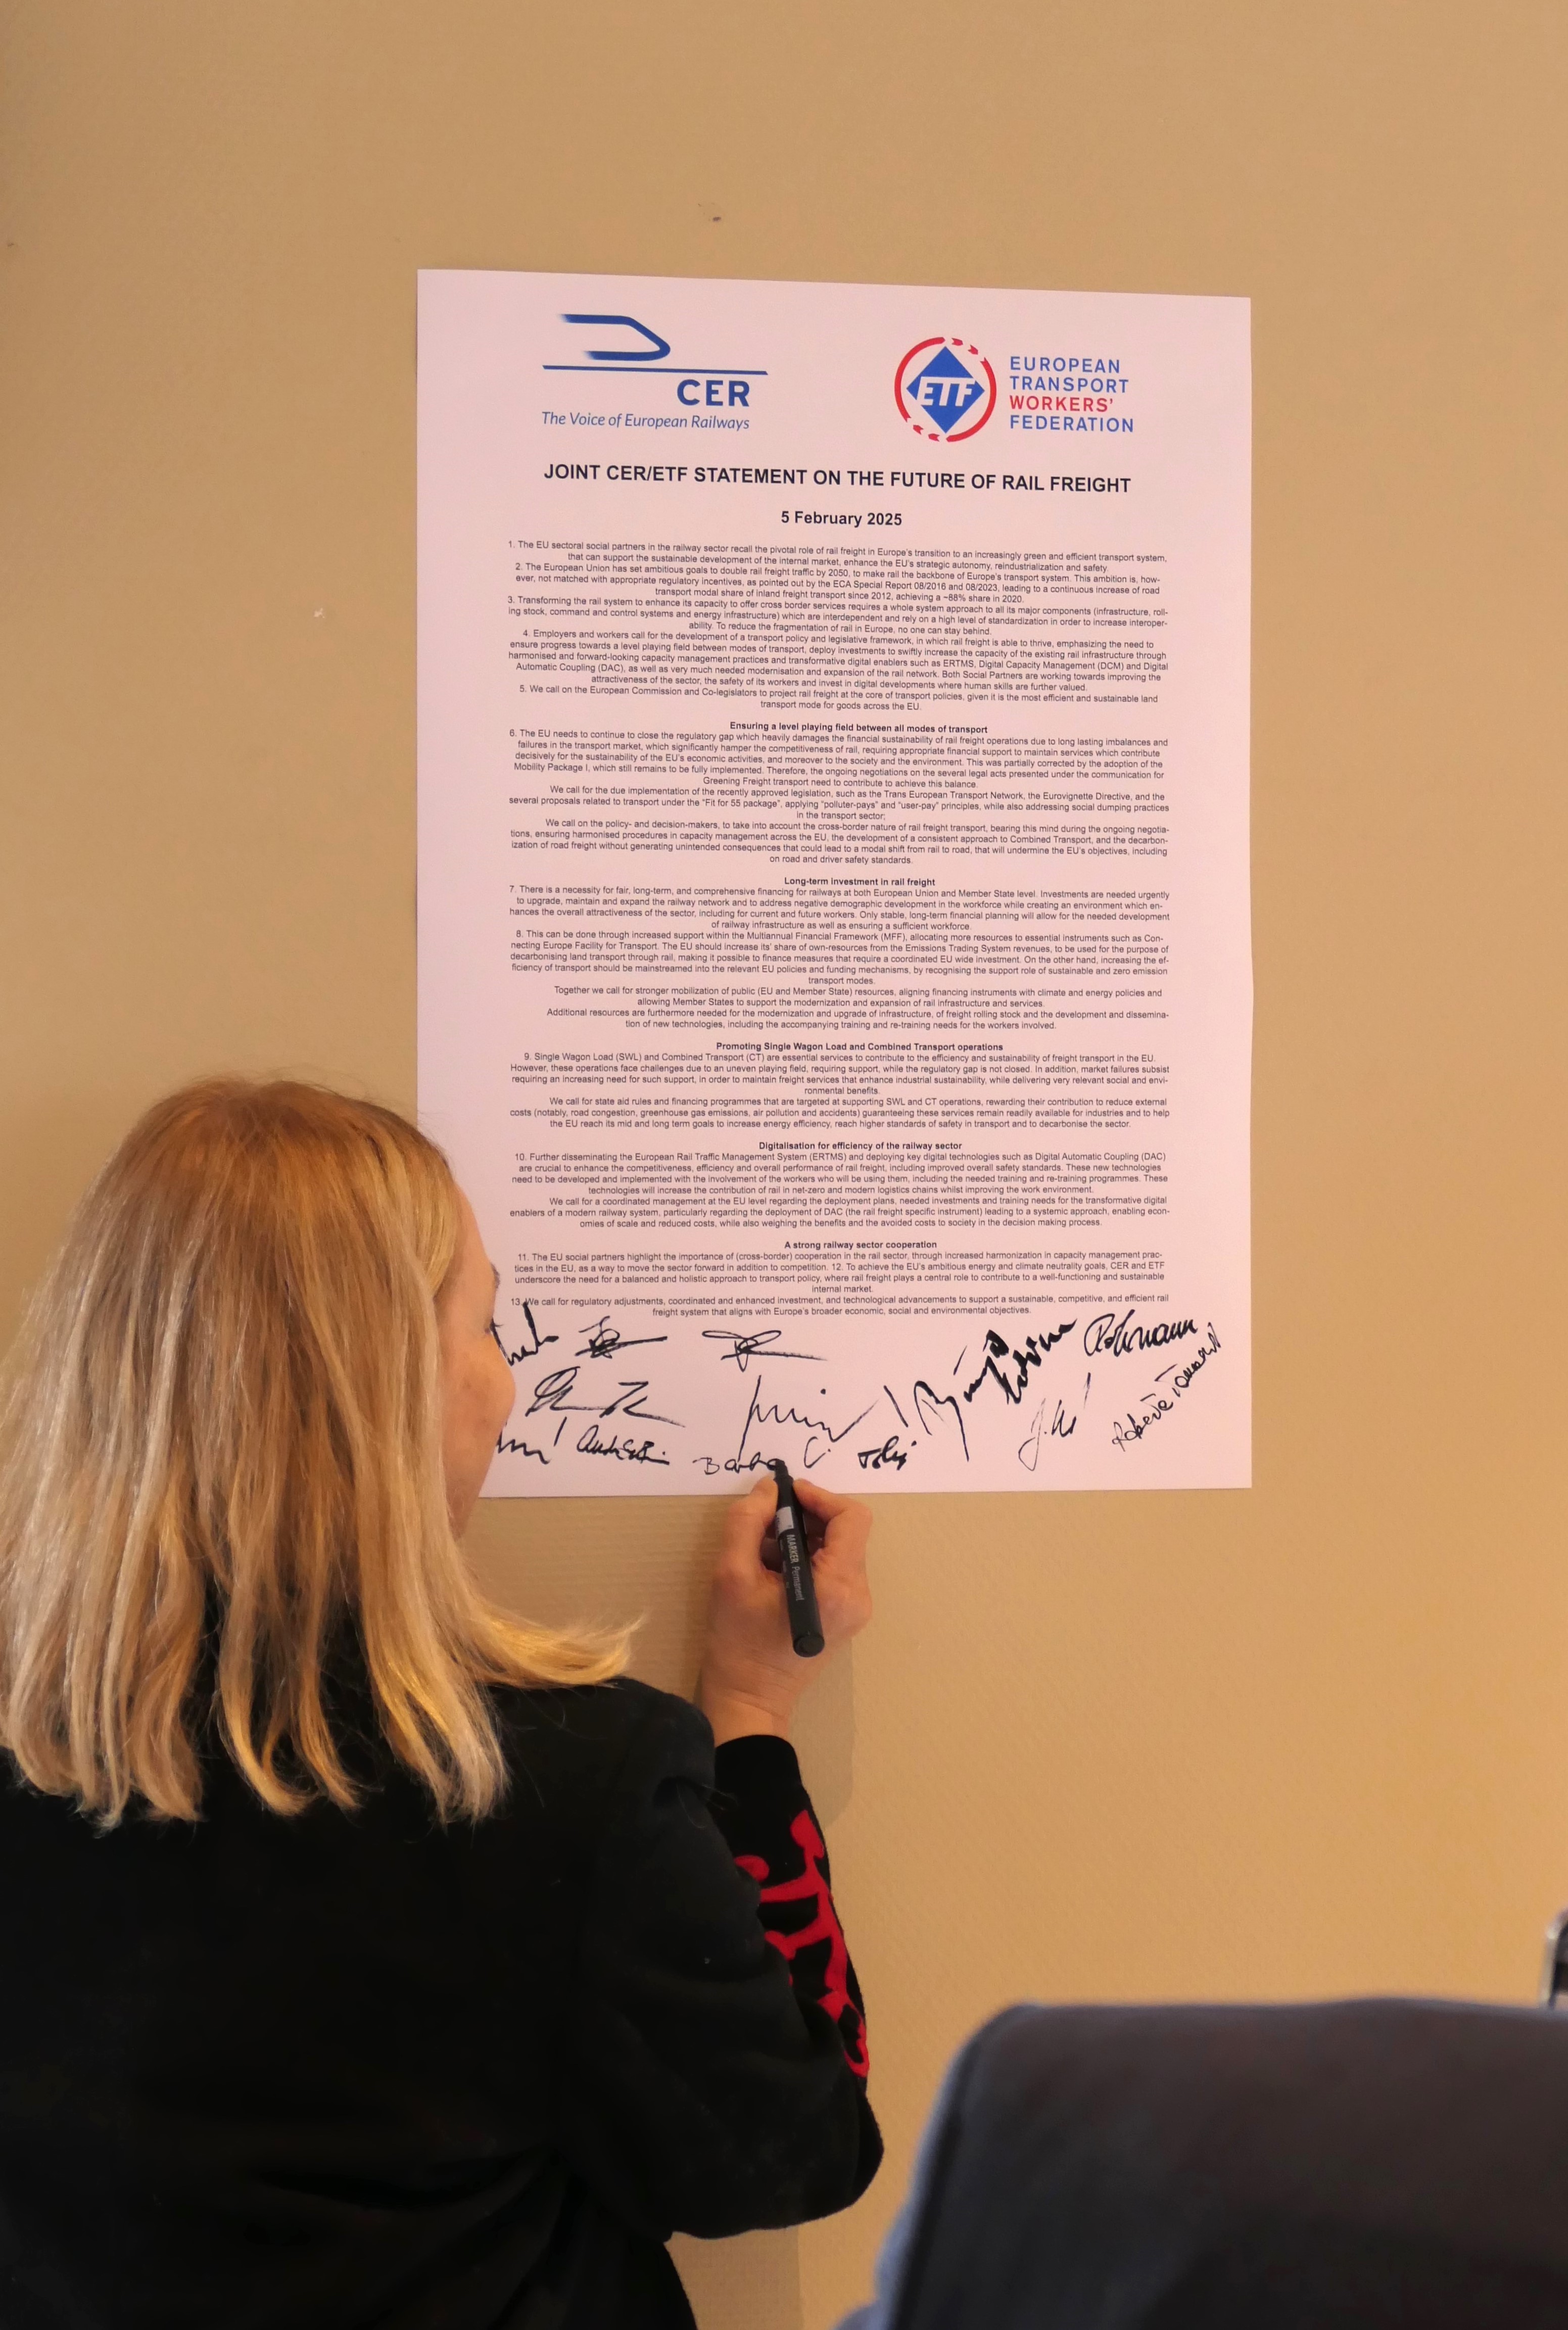 CER
The Voice of European Railways
ETF
EUROPEAN
TRANSPORT
WORKERS'
FEDERATION
JOINT CER/ETF STATEMENT ON THE FUTURE OF RAIL FREIGHT
5 February 2025
1. The EU sectoral social partners in the railway sector recall the pivotal role of rail freight in Europe's transition to an increasingly green and efficient transport system,
that can support the sustainable development of the internal market, enhance the EU's strategic autonomy, reindustrialization and safety.
2. The European Union has set ambitious goals to double rail freight traffic by 2050, to make rail the backbone of Europe's transport system. This ambition is, how-
ever, not matched with appropriate regulatory incentives, as pointed out by the ECA Special Report 08/2016 and 08/2023, leading to a continuous increase of road
transport modal share of inland freight transport since 2012, achieving a ~88% share in 2020.
3. Transforming the rail system to enhance its capacity to offer cross border services requires a whole system approach to all its major components (infrastructure, roll-
ing stock, command and control systems and energy infrastructure) which are interdependent and rely on a high level of standardization in order to increase interoper-
ability. To reduce the fragmentation of rail in Europe, no one can stay behind.
4. Employers and workers call for the development of a transport policy and legislative framework, in which rail freight is able to thrive, emphasizing the need to
ensure progress towards a level playing field between modes of transport, deploy investments to swiftly increase the capacity of the existing rail infrastructure through
harmonised and forward-looking capacity management practices and transformative digital enablers such as ERTMS, Digital Capacity Management (DCM) and Digital
Automatic Coupling (DAC), as well as very much needed modernisation and expansion of the rail network. Both Social Partners are working towards improving the
attractiveness of the sector, the safety of its workers and invest in digital developments where human skills are further valued.
5. We call on the European Commission and Co-legislators to project rail freight at the core of transport policies, given it is the most efficient and sustainable land
transport mode for goods across the EU.
Ensuring a level playing field between all modes of transport
6. The EU needs to continue to close the regulatory gap which heavily damages the financial sustainability of rail freight operations due to long lasting imbalances and
failures in the transport market, which significantly hamper the competitiveness of rail, requiring appropriate financial support to maintain services which contribute
decisively for the sustainability of the EU's economic activities, and moreover to the society and the environment. This was partially corrected by the adoption of the
Mobility Package I, which still remains to be fully implemented. Therefore, the ongoing negotiations on the several legal acts presented under the communication for
Greening Freight transport need to contribute to achieve this balance.
We call for the due implementation of the recently approved legislation, such as the Trans European Transport Network, the Eurovignette Directive, and the
several proposals related to transport under the "Fit for 55 package", applying "polluter-pays" and "user-pay" principles, while also addressing social dumping practices
in the transport sector;
We call on the policy- and decision-makers, to take into account the cross-border nature of rail freight transport, bearing this mind during the ongoing negotia-
tions, ensuring harmonised procedures in capacity management across the EU, the development of a consistent approach to Combined Transport, and the decarbon-
ization of road freight without generating unintended consequences that could lead to a modal shift from rail to road, that will undermine the EU's objectives, including
on road and driver safety standards.
Long-term investment in rail freight
7. There is a necessity for fair, long-term, and comprehensive financing for railways at both European Union and Member State level. Investments are needed urgently
to upgrade, maintain and expand the railway network and to address negative demographic development in the workforce while creating an environment which en-
hances the overall attractiveness of the sector, including for current and future workers. Only stable, long-term financial planning will allow for the needed development
of railway infrastructure as well as ensuring a sufficient workforce.
8. This can be done through increased support within the Multiannual Financial Framework (MFF), allocating more resources to essential instruments such as Con-
necting Europe Facility for Transport. The EU should increase its' share of own-resources from the Emissions Trading System revenues, to be used for the purpose of
decarbonising land transport through rail, making it possible to finance measures that require a coordinated EU wide investment. On the other hand, increasing the ef-
ficiency of transport should be mainstreamed into the relevant EU policies and funding mechanisms, by recognising the support role of sustainable and zero emission
transport modes.
Together we call for stronger mobilization of public (EU and Member State) resources, aligning financing instruments with climate and energy policies and
allowing Member States to support the modernization and expansion of rail infrastructure and services.
Additional resources are furthermore needed for the modernization and upgrade of infrastructure, of freight rolling stock and the development and dissemina-
tion of new technologies, including the accompanying training and re-training needs for the workers involved.
Promoting Single Wagon Load and Combined Transport operations
9. Single Wagon Load (SWL) and Combined Transport (CT) are essential services to contribute to the efficiency and sustainability of freight transport in the EU.
However, these operations face challenges due to an uneven playing field, requiring support, while the regulatory gap is not closed. In addition, market failures subsist
requiring an increasing need for such support, in order to maintain freight services that enhance industrial sustainability, while delivering very relevant social and envi-
ronmental benefits.
We call for state aid rules and financing programmes that are targeted at supporting SWL and CT operations, rewarding their contribution to reduce external
costs (notably, road congestion, greenhouse gas emissions, air pollution and accidents) guaranteeing these services remain readily available for industries and to help
the EU reach its mid and long term goals to increase energy efficiency, reach higher standards of safety in transport and to decarbonise the sector.
Digitalisation for efficiency of the railway sector
10. Further disseminating the European Rail Traffic Management System (ERTMS) and deploying key digital technologies such as Digital Automatic Coupling (DAC)
are crucial to enhance the competitiveness, efficiency and overall performance of rail freight, including improved overall safety standards. These new technologies
need to be developed and implemented with the involvement of the workers who will be using them, including the needed training and re-training programmes. These
technologies will increase the contribution of rail in net-zero and modern logistics chains whilst improving the work environment.
We call for a coordinated management at the EU level regarding the deployment plans, needed investments and training needs for the transformative digital
enablers of a modern railway system, particularly regarding the deployment of DAC (the rail freight specific instrument) leading to a systemic approach, enabling econ-
omies of scale and reduced costs, while also weighing the benefits and the avoided costs to society in the decision making process.
A strong railway sector cooperation
11. The EU social partners highlight the importance of (cross-border) cooperation in the rail sector, through increased harmonization in capacity management prac-
tices in the EU, as a way to move the sector forward in addition to competition. 12. To achieve the EU's ambitious energy and climate neutrality goals, CER and ETF
underscore the need for a balanced and holistic approach to transport policy, where rail freight plays a central role to contribute to a well-functioning and sustainable
internal market.
13. We call for regulatory adjustments, coordinated and enhanced investment, and technological advancements to support a sustainable, competitive, and efficient rail
freight system that aligns with Europe's broader economic, social and environmental objectives.
MARKER Permanent